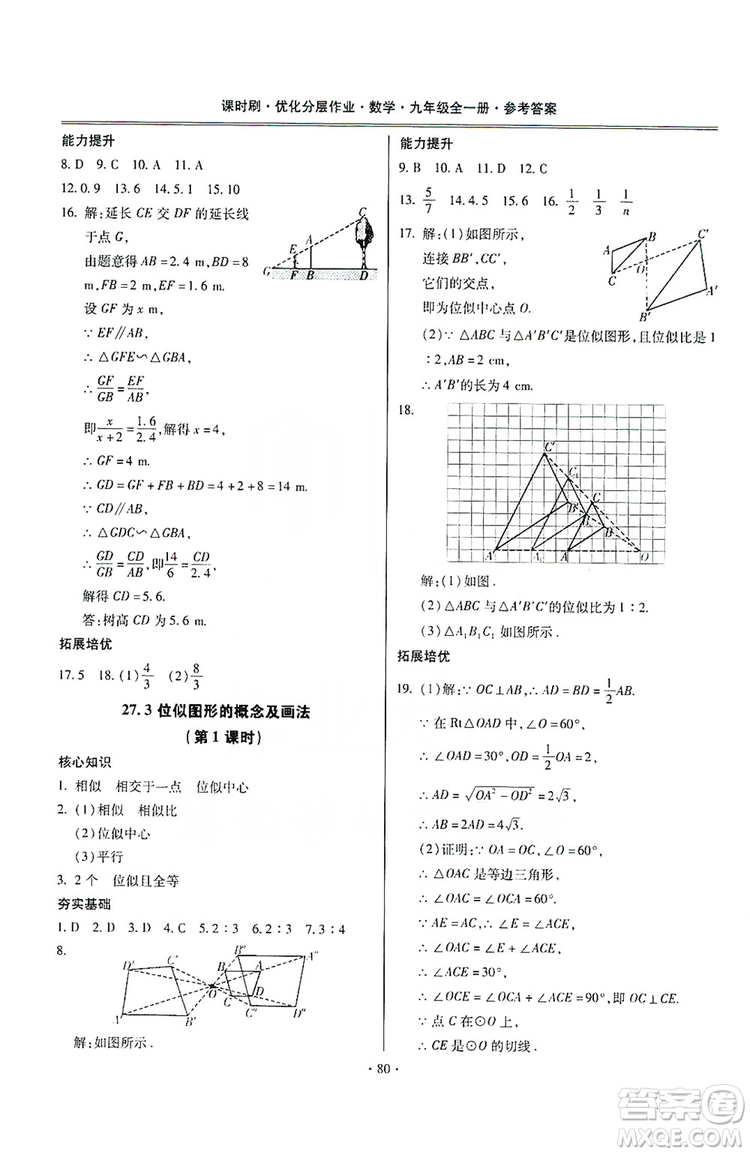 课时刷·优化分层作业·数学·九年级全一册·参考答案
能力提升
8. D 9. C 10. A 11. A
12. 0.9 13. 6 14. 5.1 15. 10
16. 解:延长 CE 交 DF 的延长线
于点 G,
由题意得 AB=2.4 m,BD=8
m,FB=2 m,EF=1.6 m.
设 GF 为 x m.
∵ EF∥AB,
∴ △GFE∽△GBA,
∴ GF/GB=EF/AB,
即 x/(x+2)=1.6/2.4,解得 x=4.
∴ GF=4 m.
∴ GD=GF+FB+BD=4+2+8=14 m.
∵ CD∥AB,
∴ △GDC∽△GBA,
∴ GD/GB=CD/AB,即14/6=CD/2.4,
解得 CD=5.6.
答:树高 CD 为 5.6 m.
拓展培优
17. 5 18. (1)4/3 (2)8/3
27.3 位似图形的概念及画法
(第 1 课时)
核心知识
1. 相似 相交于一点 位似中心
2. (1)相似 相似比
(2)位似中心
(3)平行
3. 2 个 位似且全等
夯实基础
1. D 2. D 3. D 4. C 5. 2∶3 6. 2∶3 7. 3∶4
8.
D′ C′ B B″ A A″
O C D
A′ B′ C″ D″
解:如图所示.
G E F A B C D
能力提升
9. B 10. A 11. C 12. D
13. 5/7 14. 4.5 15. 6 16. 1/2 1/3 1/n
17. 解:(1)如图所示,
连接 BB′,CC′,
它们的交点,
即为位似中心点 O.
A B C O C′ A′ B′
(2)∵ △ABC 与△A′B′C′是位似图形,且位似比是 1
∶2,AB=2 cm,
∴ A′B′的长为 4 cm.
18.
C′ C₁ C
B′ B₁ B
A′ A₁ A O
解:(1)如图.
(2)△ABC 与△A′B′C′的位似比为 1∶2.
(3)△A₁B₁C₁ 如图所示.
拓展培优
19. (1)解:∵ OC⊥AB,∴ AD=BD=1/2AB.
∵ 在 Rt△OAD 中,∠O=60°,
∴ ∠OAD=30°,OD=1/2OA=2.
∴ AD=√(OA²−OD²)=2√3,
∴ AB=2AD=4√3.
(2)证明:∵ OA=OC,∠O=60°,
∴ △OAC 是等边三角形,
∴ ∠OAC=∠OCA=60°.
∵ AE=AC,∴ ∠E=∠ACE,
∴ ∠OAC=∠E+∠ACE=60°,
∴ ∠ACE=30°,
∴ ∠OCE=∠OCA+∠ACE=90°,即 OC⊥CE.
∵ 点 C 在⊙O 上,
∴ CE 是⊙O 的切线.
· 80 ·
答案圈
MXQE.COM